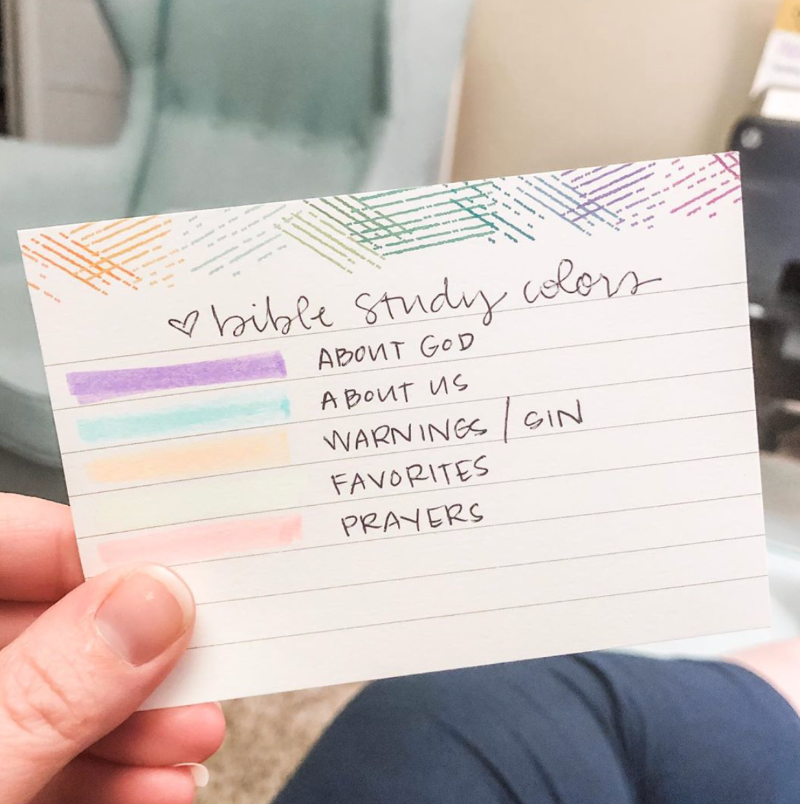 ♡ bible study colors
ABOUT GOD
ABOUT US
WARNINGS / SIN
FAVORITES
PRAYERS